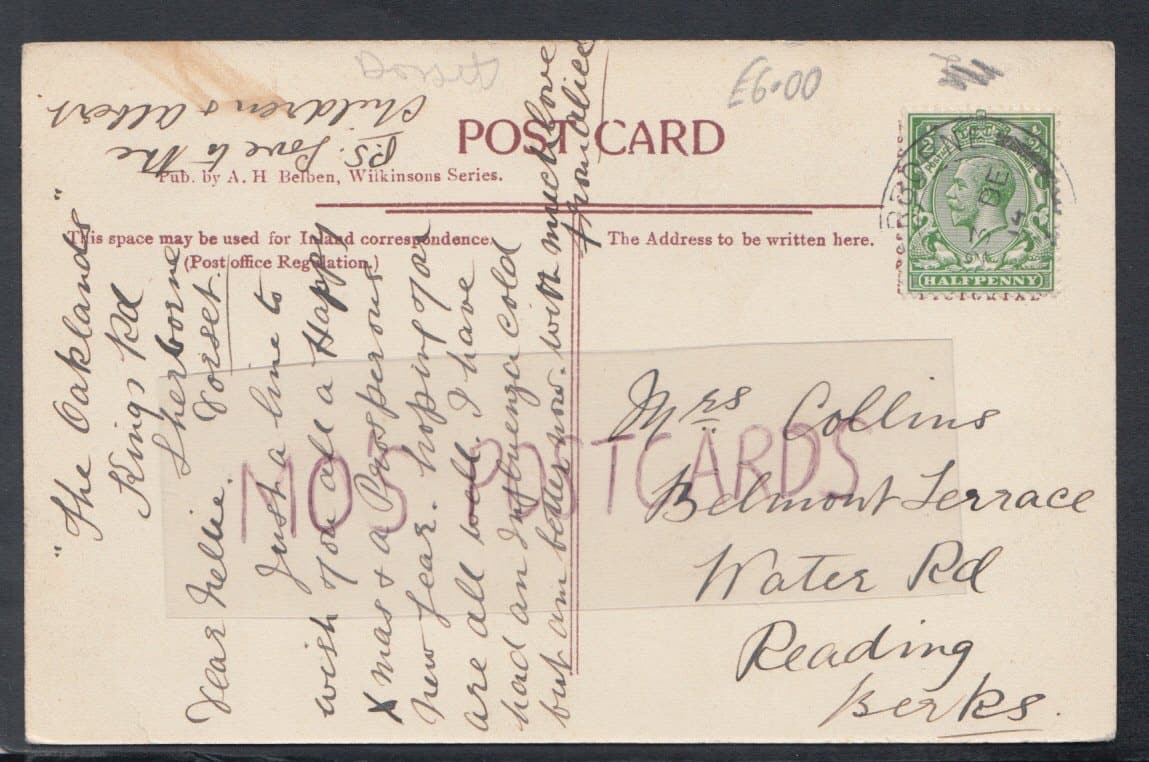 Dorset
£6.00
POST CARD
Pub. by A. H Belben, Wilkinsons Series.
This space may be used for Inland correspondence.
(Post office Regulation.)
The Address to be written here.
HALFPENNY
"The Oaklands"
Kings Rd
Sherborne
Dorset.
Dear Nellie.
Just a line to
wish you all a Happy
Xmas & a Prosperous
New Year. hoping you
are all well. I have
had an Influenza cold
but am better now. with much love
from Alice
P.S. Love to the
Children & Albert
Mrs Collins
Belmont Terrace
Water Rd
Reading
Berks.
MO5 POSTCARDS